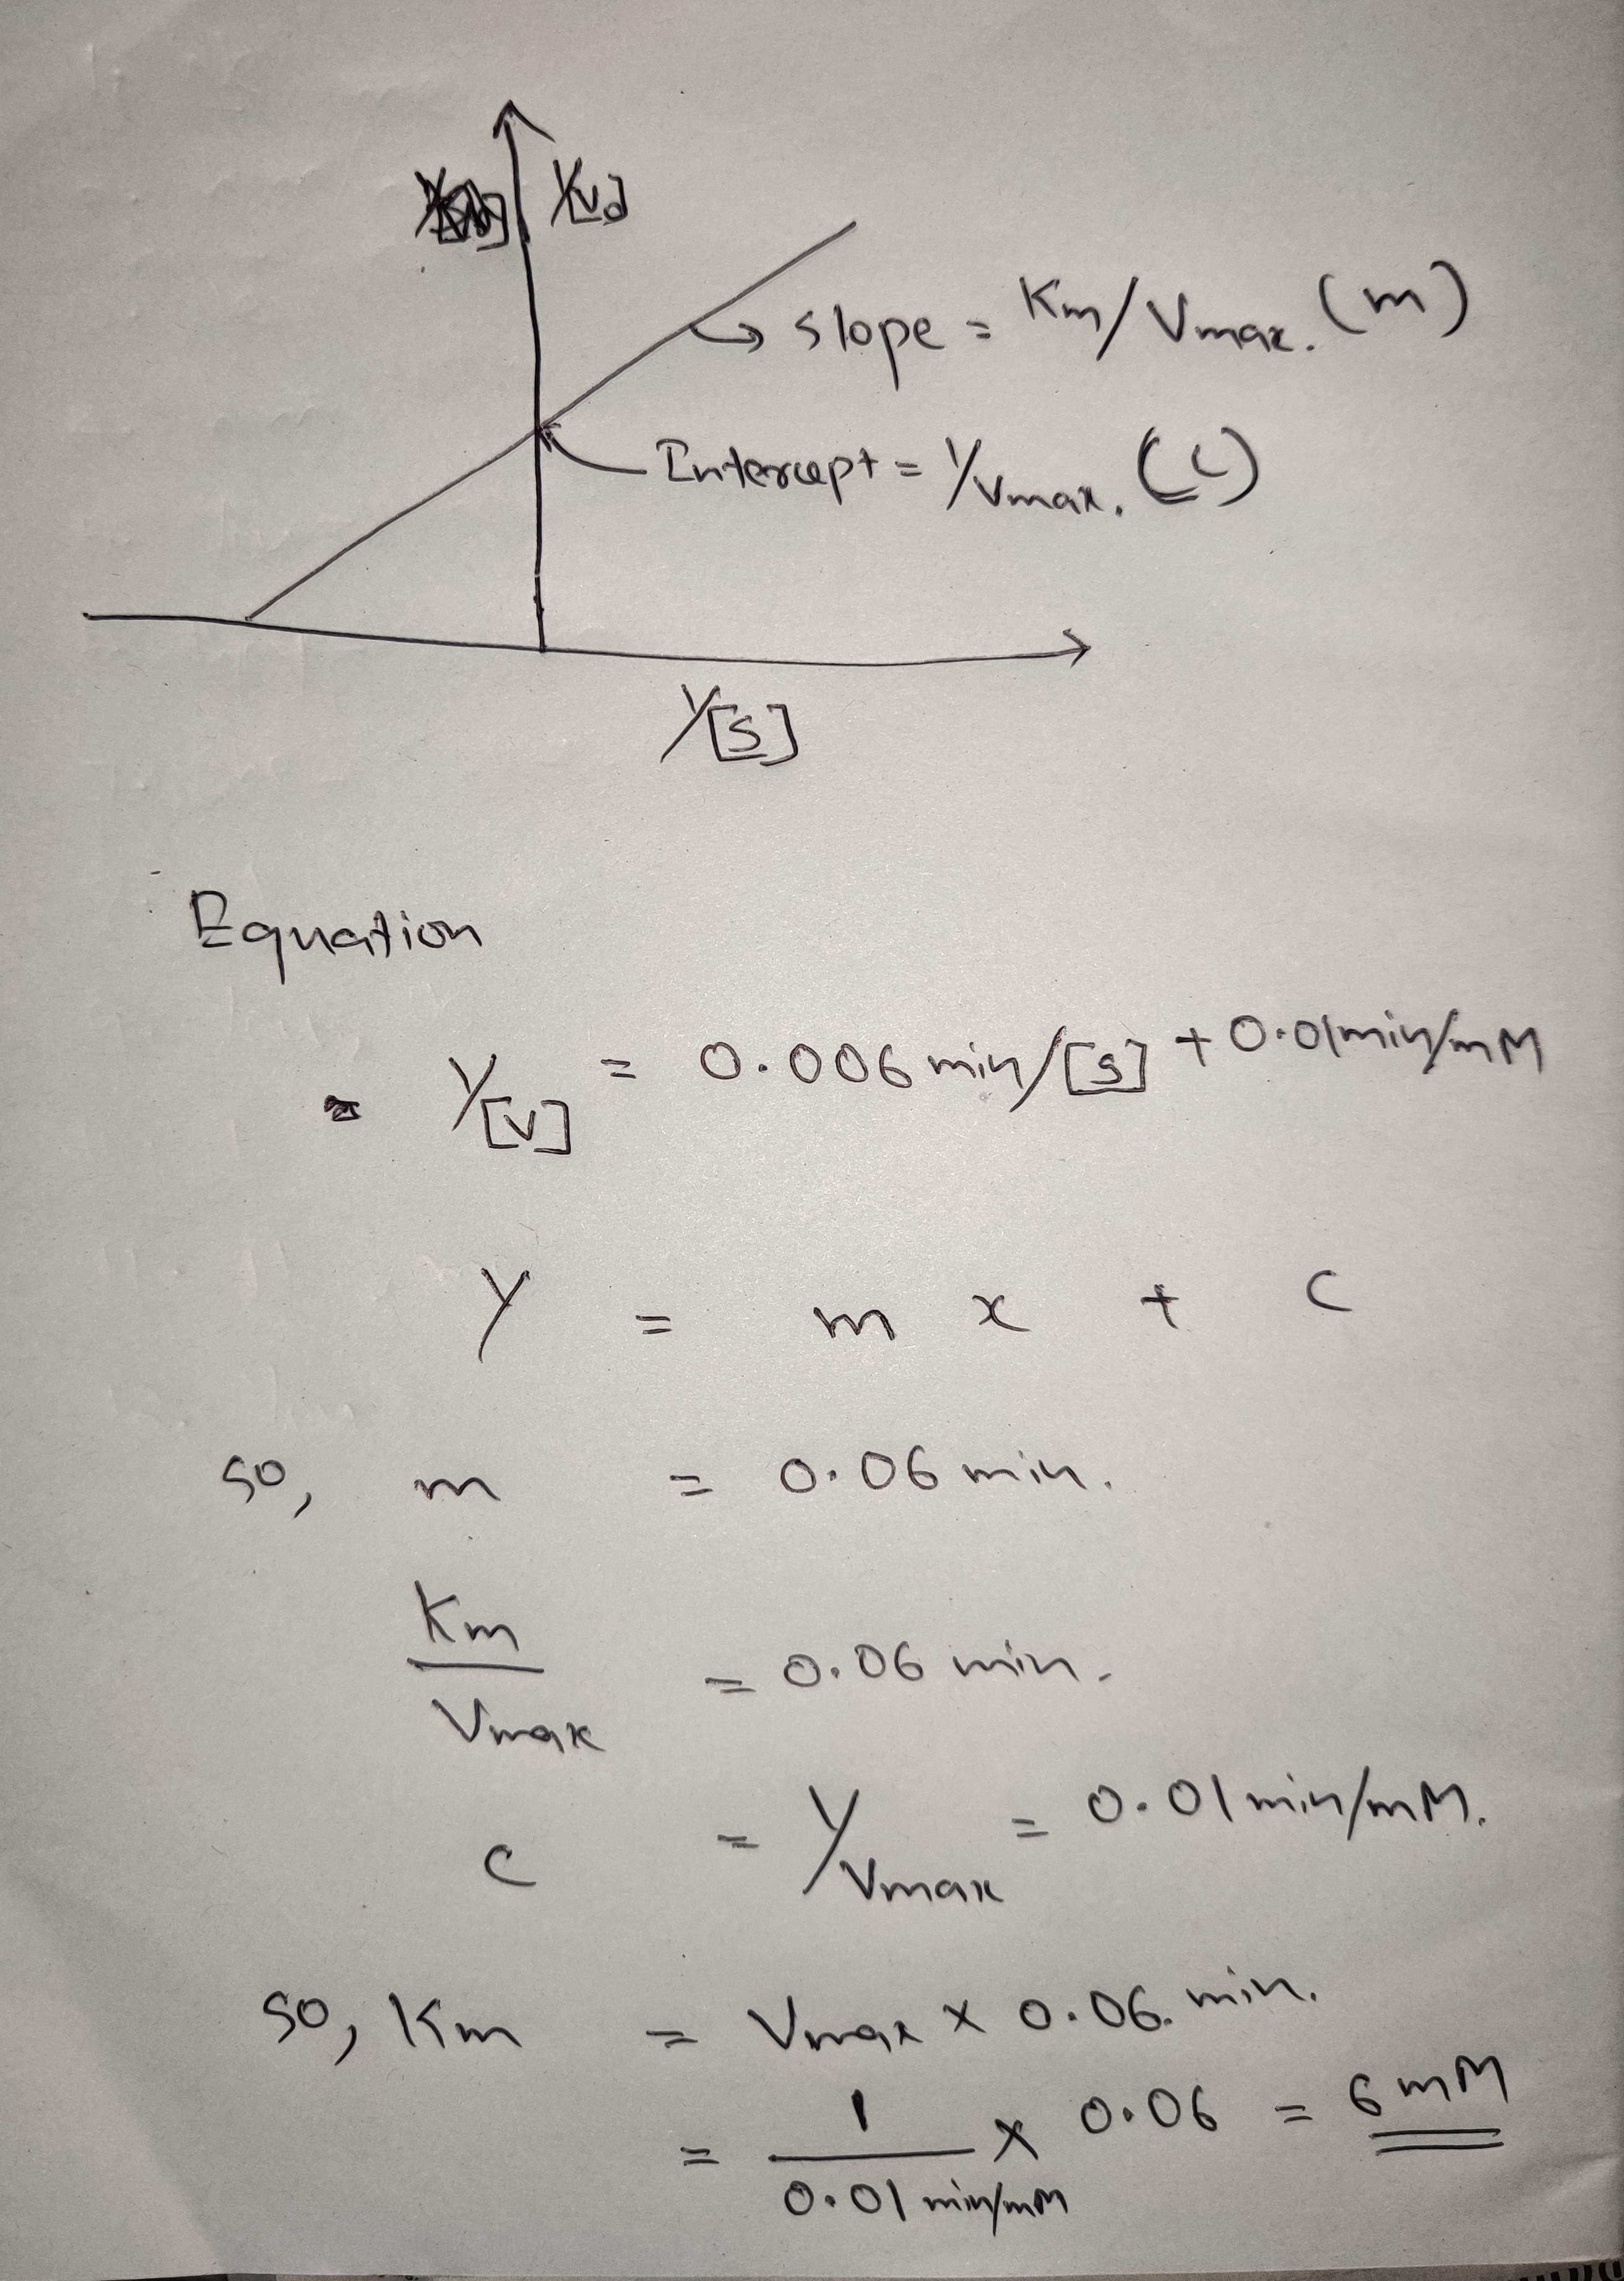 1/[V0]
slope = Km/Vmax. (m)
Intercept = 1/Vmax. (C)
1/[S]
Equation
= 1/[V] = 0.006 min/[S] + 0.01 min/mM
Y = m x + C
so, m = 0.06 min.
Km/Vmax = 0.06 min.
C = 1/Vmax = 0.01 min/mM.
so, Km = Vmax x 0.06. min.
= 1/0.01 min/mM x 0.06 = 6 mM